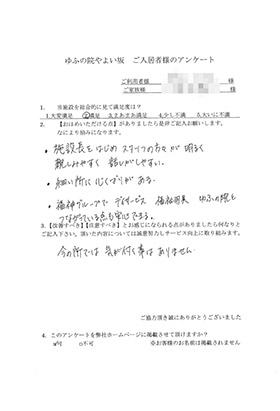 ゆふの院やよい坂　ご入居者様のアンケート
ご利用者様　様
ご家族様　様
1. 当施設を総合的に見て満足度は？
1.大変満足　②満足　3.まあまあ満足　4.少し不満　5.大いに不満
2. 【お褒めいただける点】がありましたら是非ご記入お願いします。
なにより励みになります。
・施設長をはじめスタッフの方々が明るく
親しみやすく 話しがしやすい。
・細い所に心くばりがある。
・福神グループで デイサービス 福祉用具 ゆふの院と
つながっている点も安心できる。
3. 【改善すべき】【注意すべき】とお感じになられる点がありましたら何なりと
ご記入下さい。頂いた内容については誠意努力しサービス向上に取り組みます。
今の所では 気が付く事は ありません
ご協力頂き誠にありがとうございました
4. このアンケートを弊社ホームページに掲載させて頂けますか？
□不可　※お客様のお名前は掲載されません